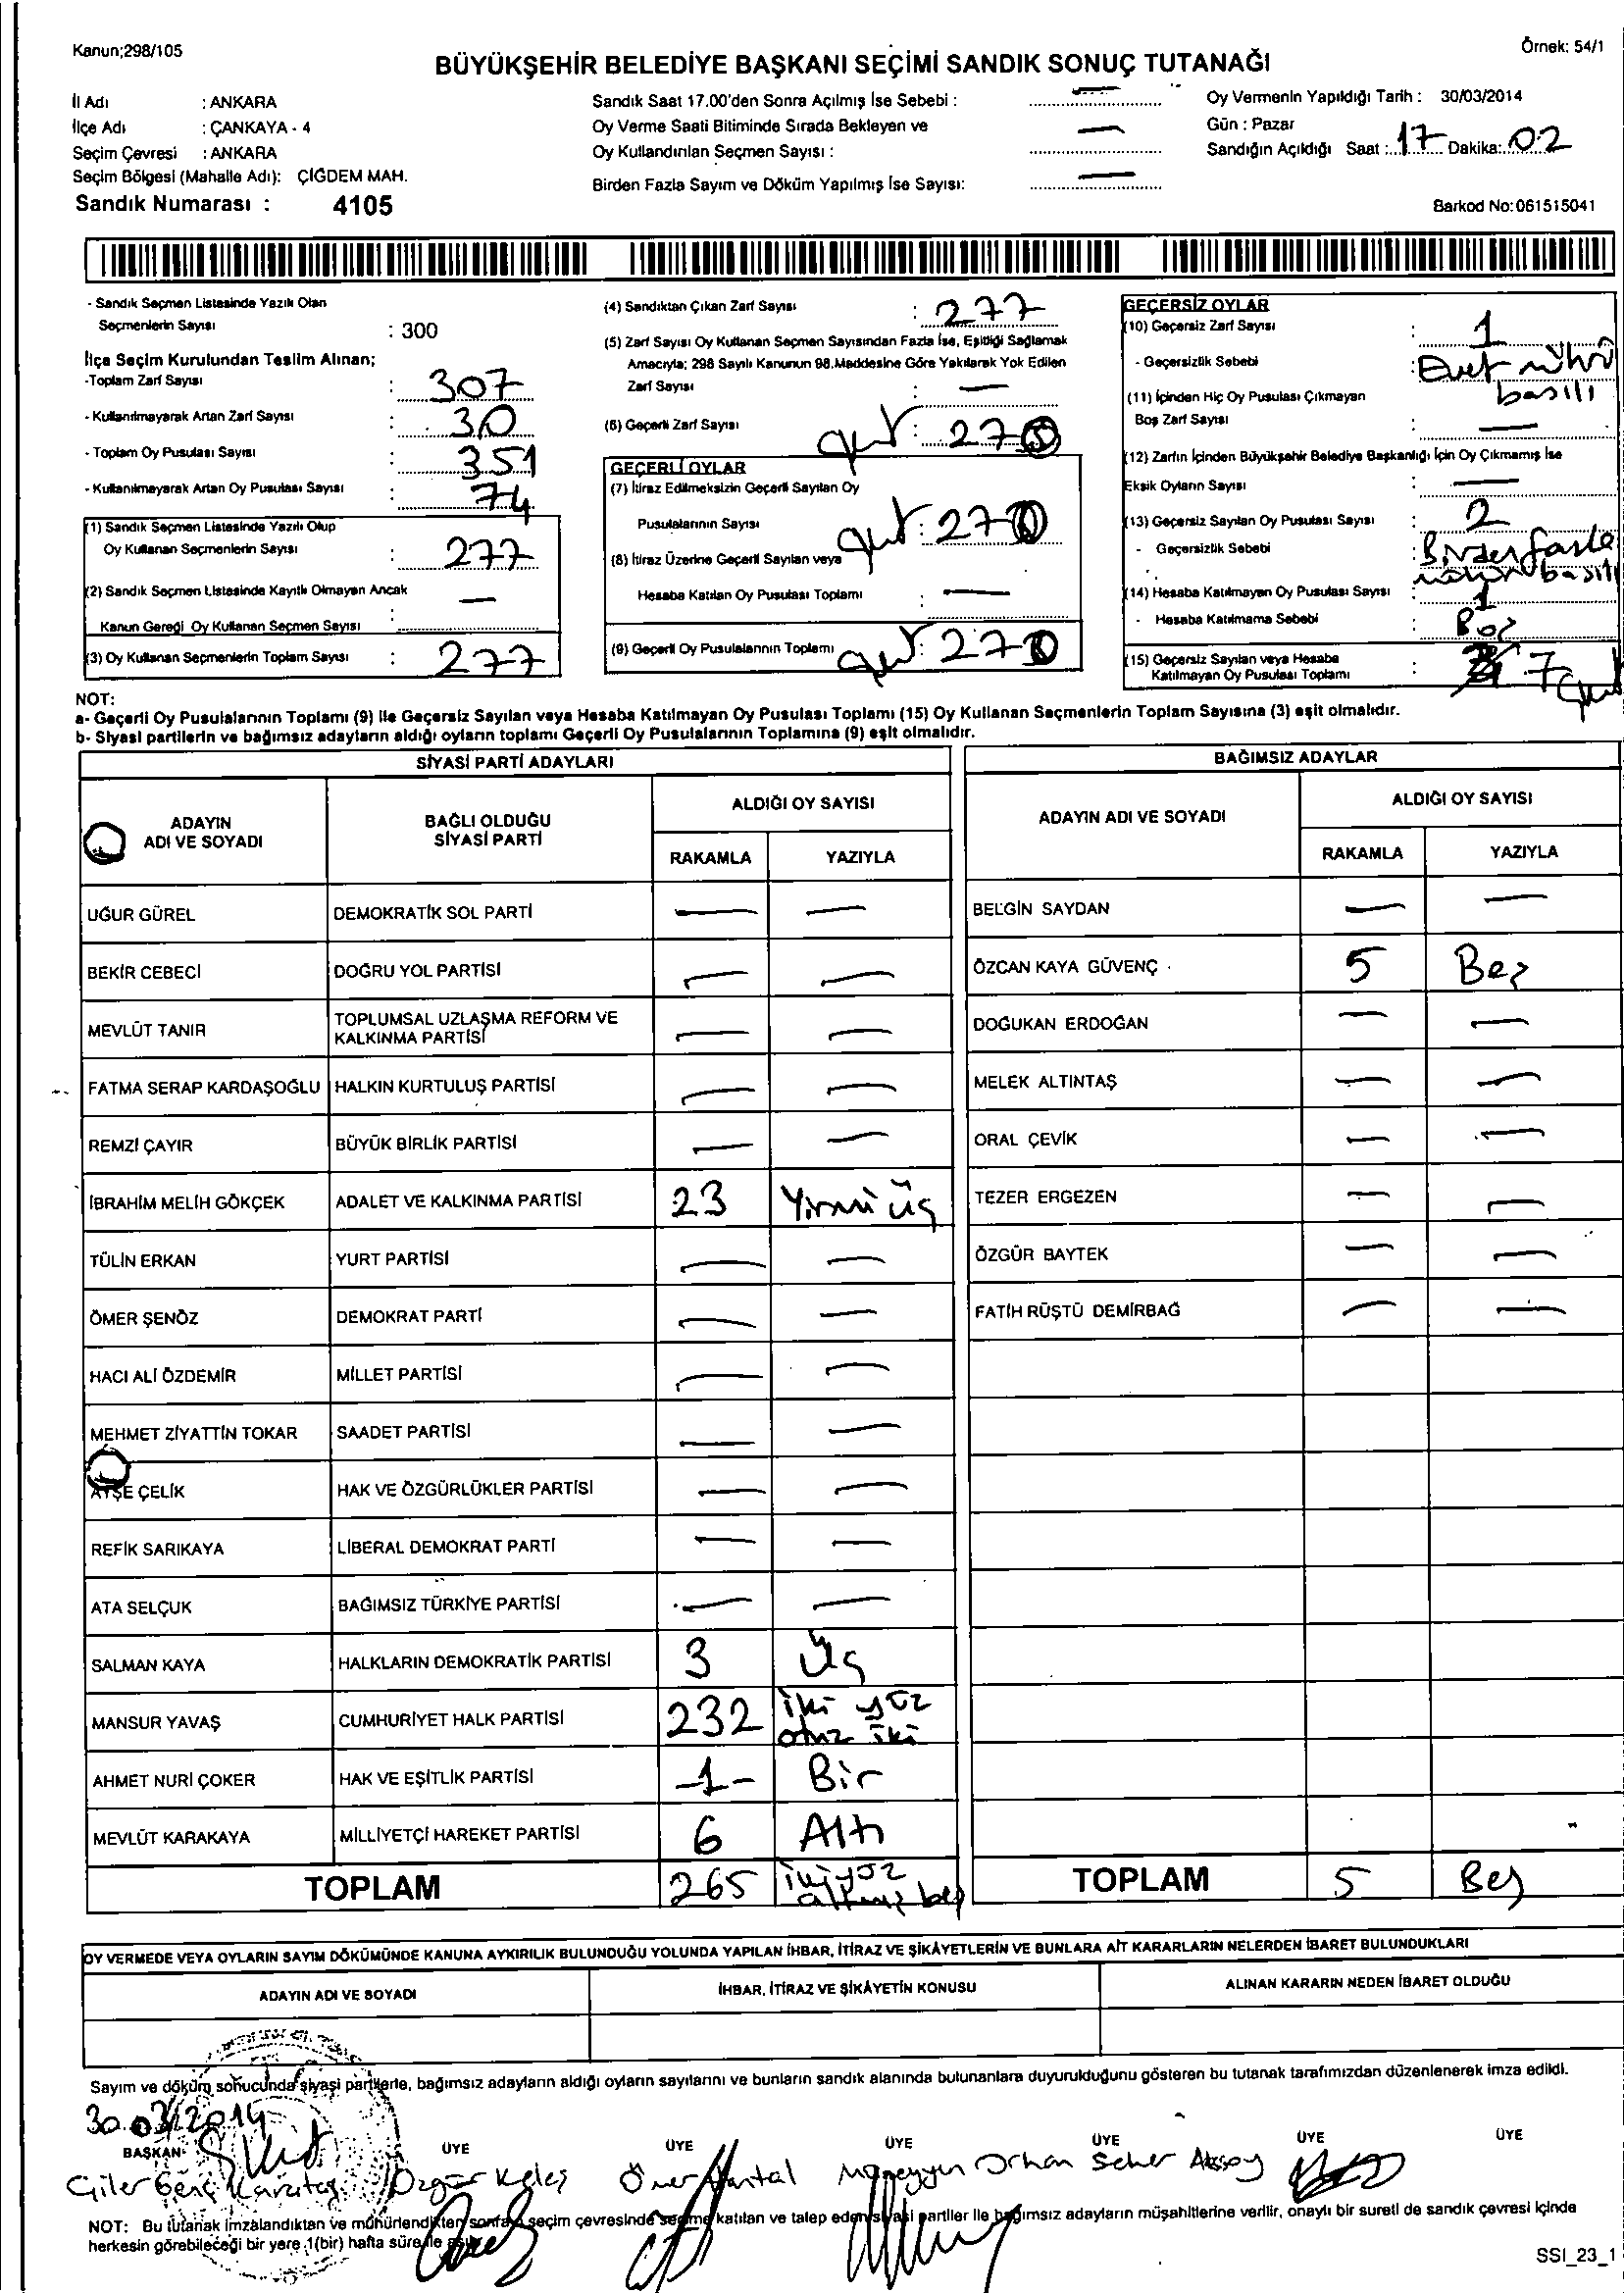 Kanun;298/105
Örnek: 54/1
BÜYÜKŞEHİR BELEDİYE BAŞKANI SEÇİMİ SANDIK SONUÇ TUTANAĞI
İl Adı : ANKARA
İlçe Adı : ÇANKAYA - 4
Seçim Çevresi : ANKARA
Seçim Bölgesi (Mahalle Adı): ÇİĞDEM MAH.
Sandık Numarası : 4105
Sandık Saat 17.00'den Sonra Açılmış İse Sebebi : —
Oy Verme Saati Bitiminde Sırada Bekleyen ve
Oy Kullandırılan Seçmen Sayısı : —
Birden Fazla Sayım ve Döküm Yapılmış İse Sayısı: —
Oy Vermenin Yapıldığı Tarih : 30/03/2014
Gün : Pazar
Sandığın Açıldığı Saat : 17 Dakika: 02
Barkod No:061515041
- Sandık Seçmen Listesinde Yazılı Olan
Seçmenlerin Sayısı : 300
İlçe Seçim Kurulundan Teslim Alınan;
-Toplam Zarf Sayısı : 307
- Kullanılmayarak Artan Zarf Sayısı : 30
- Toplam Oy Pusulası Sayısı : 351
- Kullanılmayarak Artan Oy Pusulası Sayısı : 74
(1) Sandık Seçmen Listesinde Yazılı Olup
Oy Kullanan Seçmenlerin Sayısı : 277
(2) Sandık Seçmen Listesinde Kayıtlı Olmayan Ancak
Kanun Gereği Oy Kullanan Seçmen Sayısı : —
(3) Oy Kullanan Seçmenlerin Toplam Sayısı : 277
(4) Sandıktan Çıkan Zarf Sayısı : 277
(5) Zarf Sayısı Oy Kullanan Seçmen Sayısından Fazla İse, Eşitliği Sağlamak
Amacıyla; 298 Sayılı Kanunun 98.Maddesine Göre Yakılarak Yok Edilen
Zarf Sayısı : —
(6) Geçerli Zarf Sayısı :
GEÇERLİ OYLAR
(7) İtiraz Edilmeksizin Geçerli Sayılan Oy
Pusulalarının Sayısı : 270
(8) İtiraz Üzerine Geçerli Sayılan veya
Hesaba Katılan Oy Pusulası Toplamı : —
(9) Geçerli Oy Pusulalarının Toplamı : 270
GEÇERSİZ OYLAR
(10) Geçersiz Zarf Sayısı : 1
- Geçersizlik Sebebi : Evet mührü
basılı
(11) İçinden Hiç Oy Pusulası Çıkmayan
Boş Zarf Sayısı : —
(12) Zarfın İçinden Büyükşehir Belediye Başkanlığı İçin Oy Çıkmamış İse
Eksik Oyların Sayısı : —
(13) Geçersiz Sayılan Oy Pusulası Sayısı : 2
- Geçersizlik Sebebi : Birden fazla
mühür basılı
(14) Hesaba Katılmayan Oy Pusulası Sayısı : 1
- Hesaba Katılmama Sebebi : Boş
(15) Geçersiz Sayılan veya Hesaba
Katılmayan Oy Pusulası Toplamı : 7
NOT:
a- Geçerli Oy Pusulalarının Toplamı (9) ile Geçersiz Sayılan veya Hesaba Katılmayan Oy Pusulası Toplamı (15) Oy Kullanan Seçmenlerin Toplam Sayısına (3) eşit olmalıdır.
b- Siyasi partilerin ve bağımsız adayların aldığı oyların toplamı Geçerli Oy Pusulalarının Toplamına (9) eşit olmalıdır.
SİYASİ PARTİ ADAYLARI
ADAYIN
ADI VE SOYADI
BAĞLI OLDUĞU
SİYASİ PARTİ
ALDIĞI OY SAYISI
RAKAMLA YAZIYLA
UĞUR GÜREL DEMOKRATİK SOL PARTİ — —
BEKİR CEBECİ DOĞRU YOL PARTİSİ — —
MEVLÜT TANIR TOPLUMSAL UZLAŞMA REFORM VE
KALKINMA PARTİSİ — —
FATMA SERAP KARDAŞOĞLU HALKIN KURTULUŞ PARTİSİ — —
REMZİ ÇAYIR BÜYÜK BİRLİK PARTİSİ — —
İBRAHİM MELİH GÖKÇEK ADALET VE KALKINMA PARTİSİ 23 Yirmi üç
TÜLİN ERKAN YURT PARTİSİ — —
ÖMER ŞENÖZ DEMOKRAT PARTİ — —
HACI ALİ ÖZDEMİR MİLLET PARTİSİ — —
MEHMET ZİYATTİN TOKAR SAADET PARTİSİ — —
AYŞE ÇELİK HAK VE ÖZGÜRLÜKLER PARTİSİ — —
REFİK SARIKAYA LİBERAL DEMOKRAT PARTİ — —
ATA SELÇUK BAĞIMSIZ TÜRKİYE PARTİSİ — —
SALMAN KAYA HALKLARIN DEMOKRATİK PARTİSİ 3 Üç
MANSUR YAVAŞ CUMHURİYET HALK PARTİSİ 232 iki yüz
otuz iki
AHMET NURİ ÇOKER HAK VE EŞİTLİK PARTİSİ -1- Bir
MEVLÜT KARAKAYA MİLLİYETÇİ HAREKET PARTİSİ 6 Altı
TOPLAM 265 ikiyüz
altmış beş
BAĞIMSIZ ADAYLAR
ADAYIN ADI VE SOYADI
ALDIĞI OY SAYISI
RAKAMLA YAZIYLA
BELGİN SAYDAN — —
ÖZCAN KAYA GÜVENÇ 5 Beş
DOĞUKAN ERDOĞAN — —
MELEK ALTINTAŞ — —
ORAL ÇEVİK — —
TEZER ERGEZEN — —
ÖZGÜR BAYTEK — —
FATİH RÜŞTÜ DEMİRBAĞ — —
TOPLAM 5 Beş
OY VERMEDE VEYA OYLARIN SAYIM DÖKÜMÜNDE KANUNA AYKIRILIK BULUNDUĞU YOLUNDA YAPILAN İHBAR, İTİRAZ VE ŞİKÂYETLERİN VE BUNLARA AİT KARARLARIN NELERDEN İBARET BULUNDUKLARI
ADAYIN ADI VE SOYADI
İHBAR, İTİRAZ VE ŞİKÂYETİN KONUSU
ALINAN KARARIN NEDEN İBARET OLDUĞU
Sayım ve döküm sonucunda siyasi partilerle, bağımsız adayların aldığı oyların sayılarını ve bunların sandık alanında bulunanlara duyurulduğunu gösteren bu tutanak tarafımızdan düzenlenerek imza edildi.
30.03/2014
BAŞKAN ÜYE ÜYE ÜYE ÜYE ÜYE ÜYE
Özgür Keleş Ömer Orhan Seher Aksoy
NOT: Bu tutanak imzalandıktan ve mühürlendikten sonra seçim çevresinde seçime katılan ve talep eden siyasi partiler ile bağımsız adayların müşahitlerine verilir, onaylı bir sureti de sandık çevresi içinde
herkesin görebileceği bir yere 1(bir) hafta süre ile asılır.
SSI_23_1